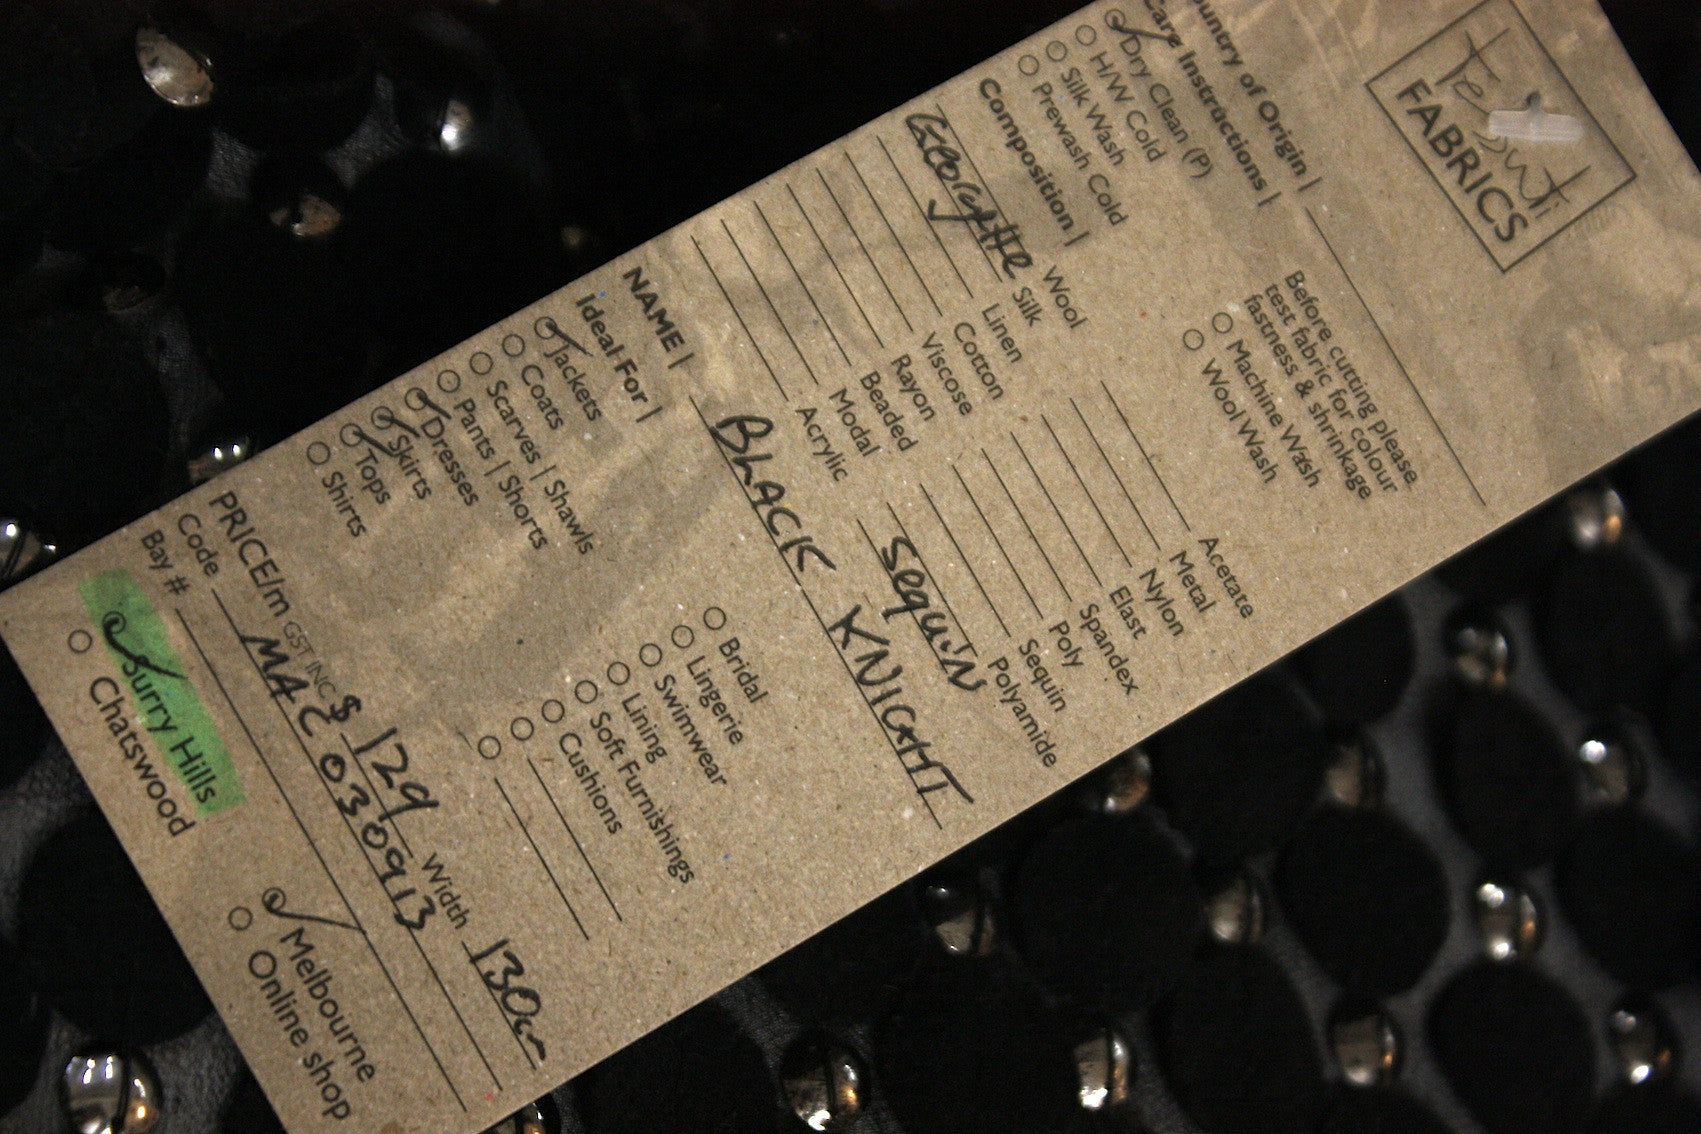 Tessuti
FABRICS
Country of Origin |
Care Instructions |
Dry Clean (P)
H/W Cold
Silk Wash
Prewash Cold
Before cutting please
test fabric for colour
fastness & shrinkage
Machine Wash
Wool Wash
Composition |
Wool
Georgette Silk
Linen
Cotton
Viscose
Rayon
Beaded
Modal
Acrylic
Acetate
Metal
Nylon
Elast
Spandex
Poly
Sequin
Sequin Polyamide
NAME | BLACK KNIGHT
Ideal For |
Jackets
Coats
Scarves | Shawls
Pants | Shorts
Dresses
Skirts
Tops
Shirts
Bridal
Lingerie
Swimwear
Lining
Soft Furnishings
Cushions
PRICE/m GST INC $ 129 Width 130cm
Code MAC 030913
Bay #
Surry Hills
Chatswood
Melbourne
Online shop